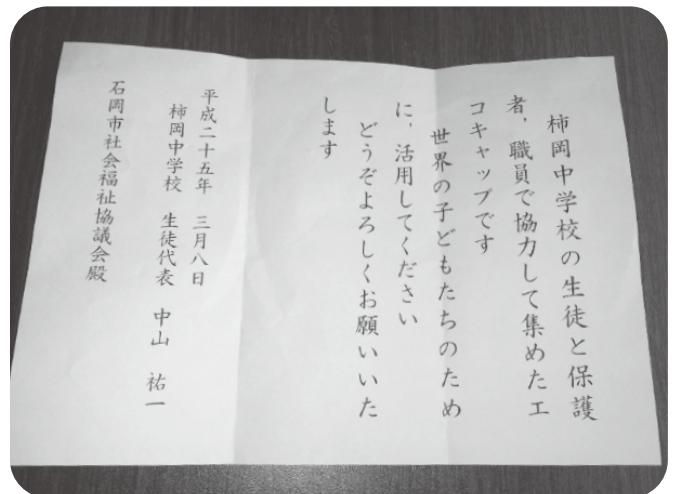 柿岡中学校の生徒と保護
者，職員で協力して集めたエ
コキャップです
世界の子どもたちのため
に，活用してください
どうぞよろしくお願いいた
します
平成二十五年　三月八日
柿岡中学校　生徒代表　中山　祐一
石岡市社会福祉協議会殿